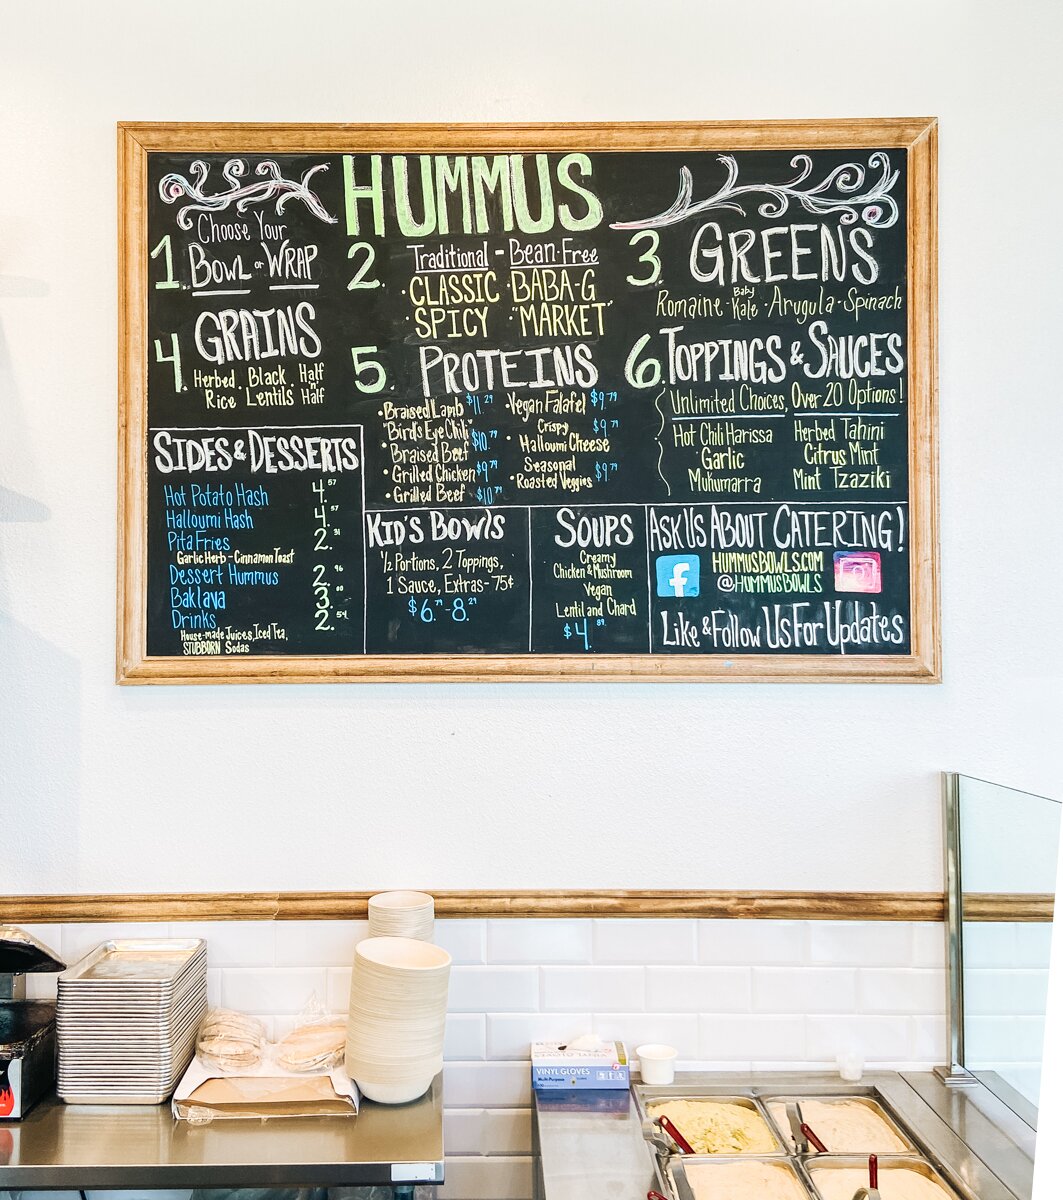 HUMMUS
1. Choose Your
BOWL or WRAP
2. Traditional - Bean-Free
• CLASSIC • BABA-G
• SPICY • "MARKET"
3. GREENS
Romaine • Baby Kale • Arugula • Spinach
4. GRAINS
Herbed Rice • Black Lentils • Half 'n' Half
5. PROTEINS
• Braised Lamb $11.29
• "Bird's Eye Chili" Braised Beef $10.79
• Grilled Chicken $9.79
• Grilled Beef $10.79
• Vegan Falafel $9.79
• Crispy Halloumi Cheese $9.79
• Seasonal Roasted Veggies $9.79
6. TOPPINGS & SAUCES
Unlimited Choices, Over 20 Options!
Hot Chili Harissa
Garlic
Mukumarra
Herbed Tahini
Citrus Mint
Mint Tzaziki
SIDES & DESSERTS
Hot Potato Hash 4.57
Halloumi Hash 4.57
Pita Fries 2.31
Garlic Herb - Cinnamon Toast
Dessert Hummus 2.96
Baklava 3.00
Drinks 2.54
House-made Juices, Iced Tea,
STUBBORN Sodas
KID'S BOWLS
½ Portions, 2 Toppings,
1 Sauce, Extras - 75¢
$6.79 - 8.29
SOUPS
Creamy
Chicken & Mushroom
Vegan
Lentil and Chard
$4.89
ASK US ABOUT CATERING!
f
HUMMUSBOWLS.COM
@HUMMUSBOWLS
Like & Follow Us For Updates
VINYL GLOVES
Multi-Purpose